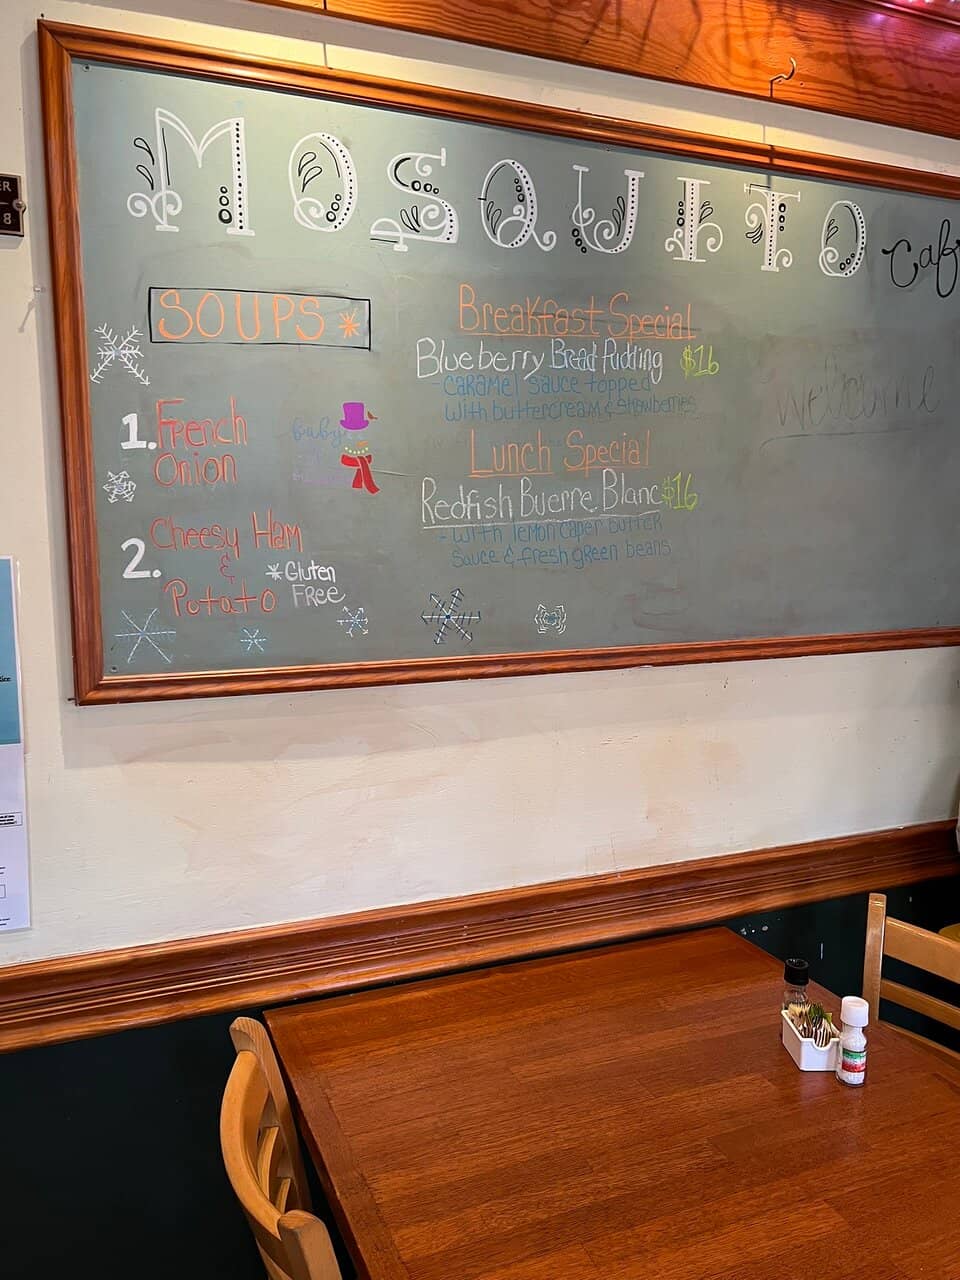 MOSQUITO Caf
SOUPS *
1. French
Onion
2. Cheesy Ham
&
Potato
* Gluten
Free
baby
Breakfast Special
Blueberry Bread Pudding $16
- Caramel sauce topped
with buttercream & strawberries
Lunch Special
Redfish Buerre Blanc $16
- with lemon caper butter
sauce & fresh green beans
Welcome
ER
8